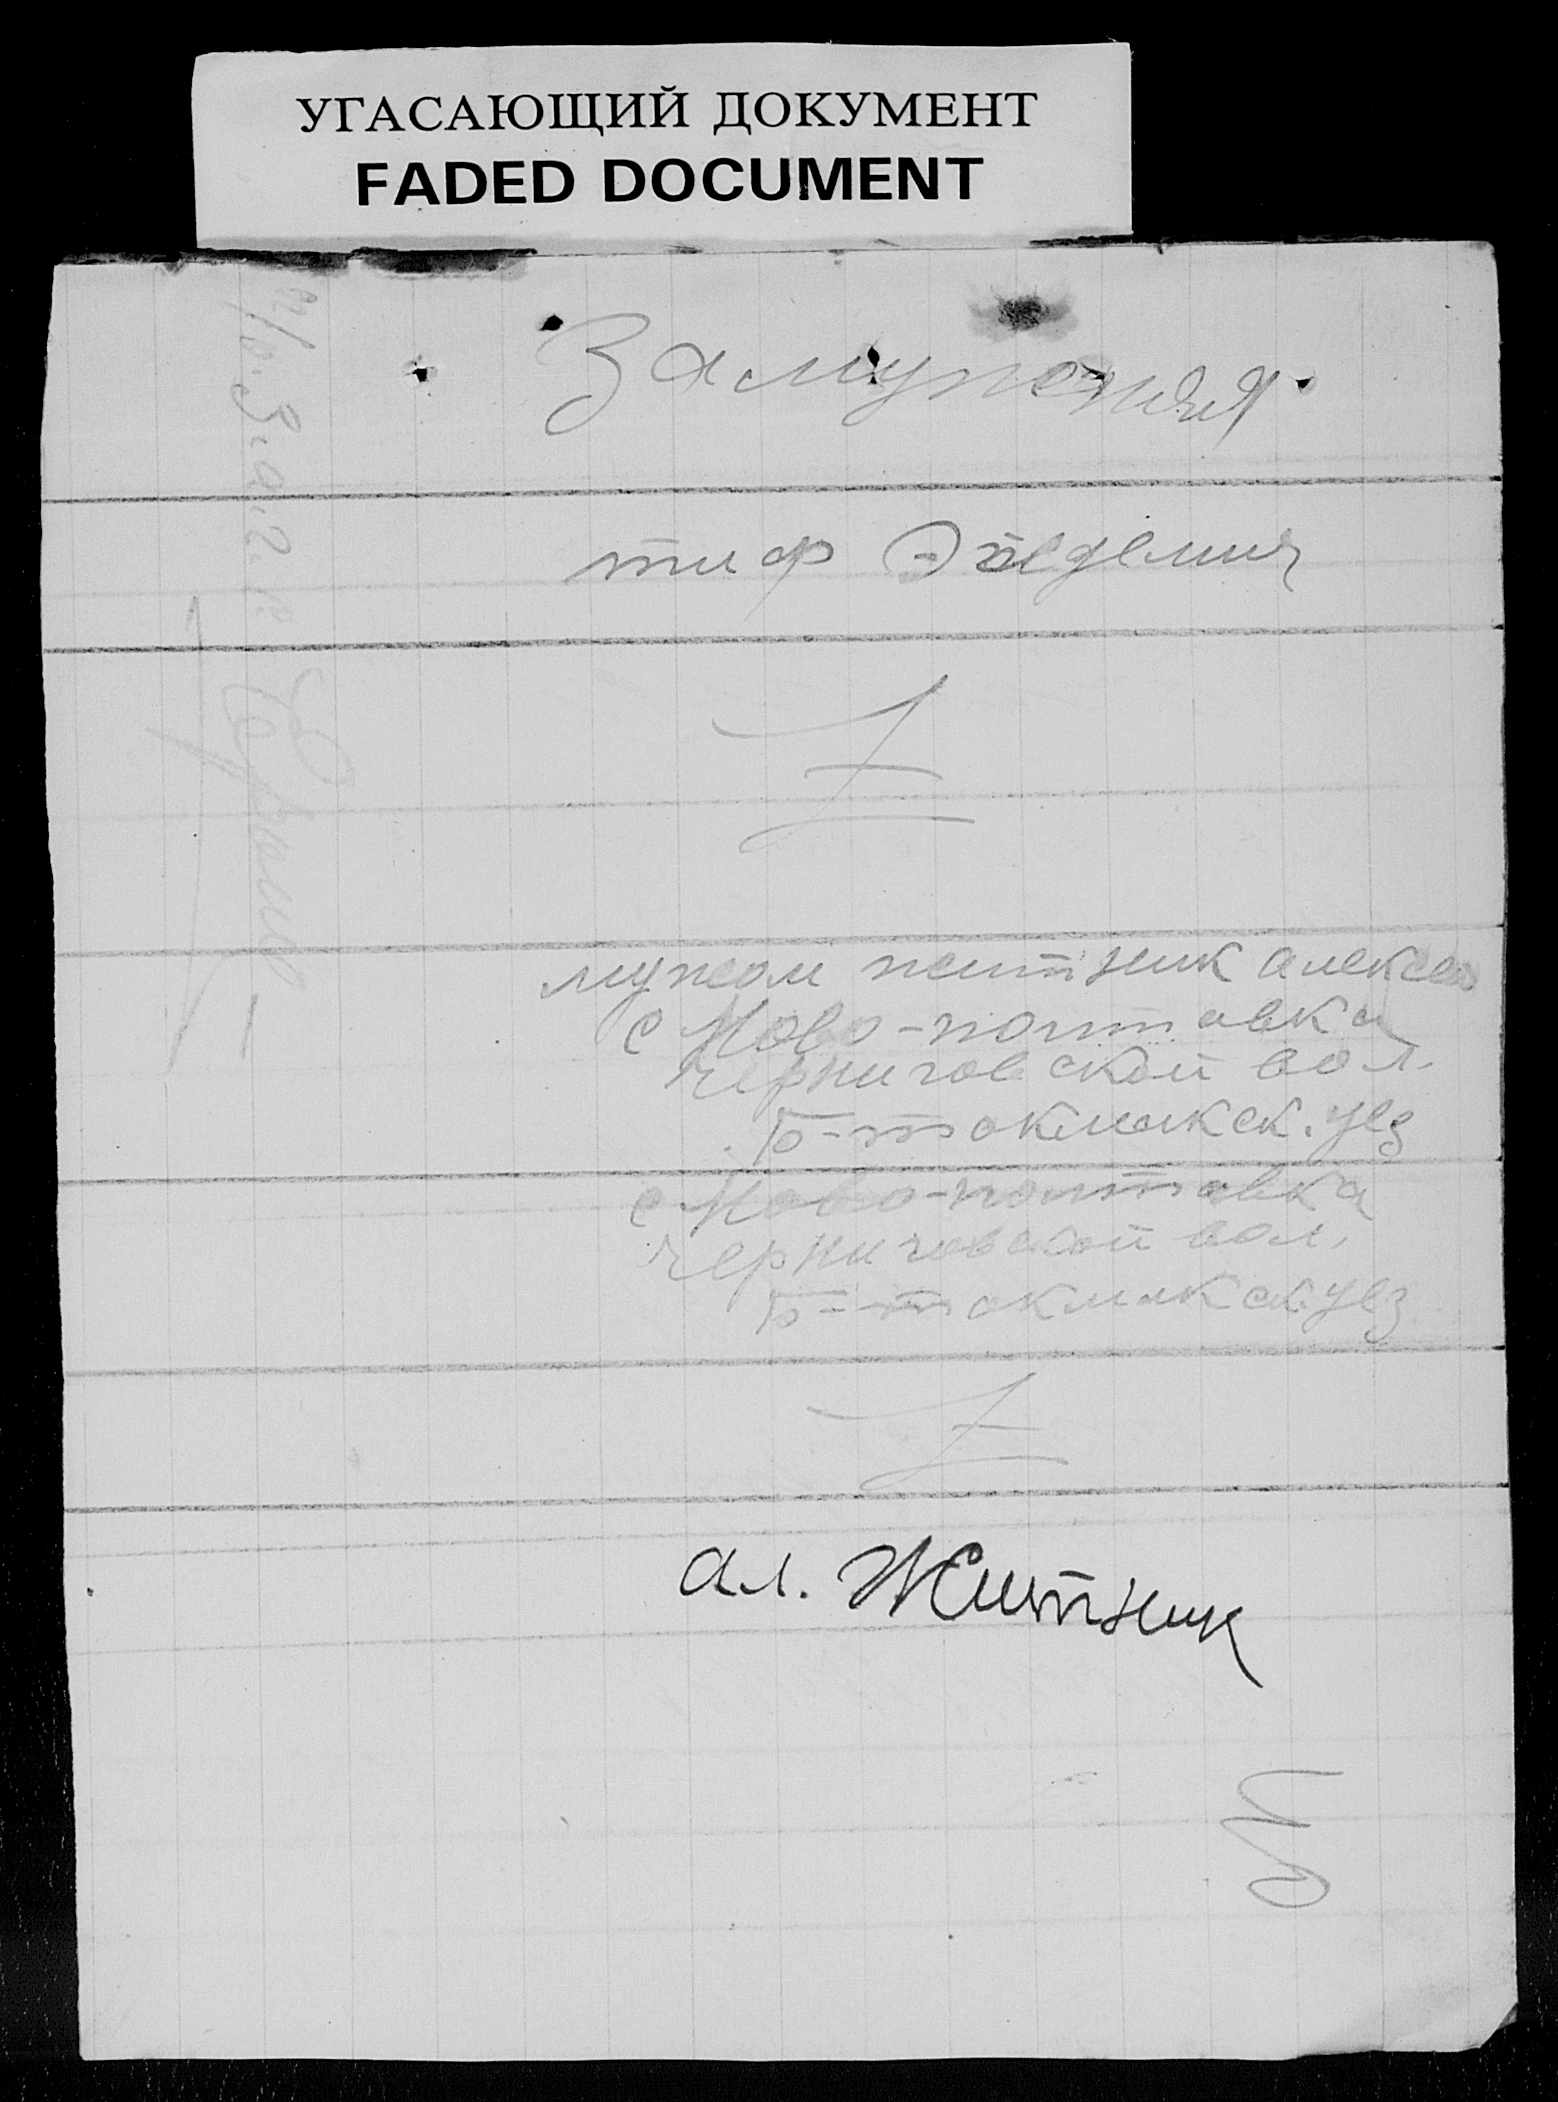 УГАСАЮЩИЙ ДОКУМЕНТ
FADED DOCUMENT
Замужняя
тиф Эпедемия
мужом житник алексей
с Ново-полтавка
Черниговской вол.
Б-токмакск. уез
с Ново-полтавка
Черниговской вол.
Б-токмакск уез
ал. Житник